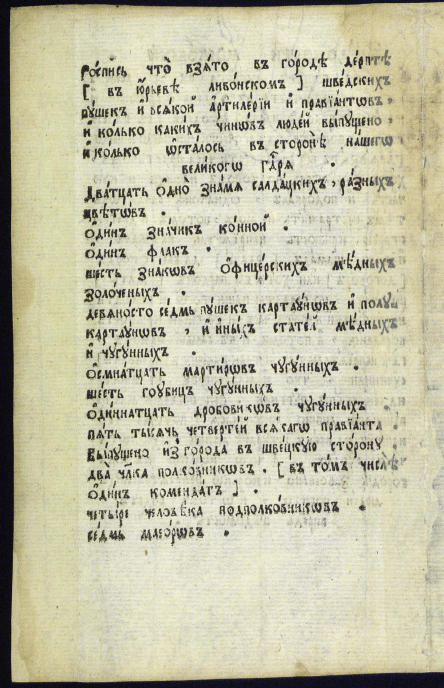 Ро́спись что̀ взѧ́то въ го́родѣ де́рптѣ
[ въ ю҆́рьевѣ ливо́нскомъ ] шве́дскихъ
пу́шекъ и҆ всѧ́кой артиле́рїи и҆ правїа́нтовъ,
и҆ колько каки́хъ чинѡ́въ люде́й вы́пущено,
и҆ ко́лько ѡ҆ста́лось въ сторо́нѣ на́шегѡ
вели́кагѡ гдⷭ҇рѧ
Два́тцать ѻ҆дно̀ зна́мѧ салда́цкихъ, ра́зныхъ
цвѣтѡ́въ .
ѻ҆ди́нъ зна́чикъ ко́нной .
ѻ҆ди́нъ флакъ .
ше́сть зна́кѡвъ ѻ҆фице́рскихъ мѣ́дныхъ
золо́ченыхъ .
девѧно́сто се́дмь пу́шекъ картау́нѡвъ и҆ полу
картау́нѡвъ , и҆ и҆ны́хъ стате́й мѣ́дныхъ
и҆ чугу́нныхъ .
ѻ҆смна́тцать марти́рѡвъ чугу́нныхъ .
ше́сть гоубицъ чугу́нныхъ .
ѻ҆ди́ннатцать дробовикѡ́въ чугу́нныхъ .
пѧ́ть ты́сѧчь че́твертей всѧ́кагѡ правїа́нта
Вы́пущено и҆з̾ го́рода въ шве́цкую сто́рону .
два̀ члв҃ка полко́вникѡвъ . [ въ то́мъ числѣ̀
ѻ҆ди́нъ коменда́тъ ] .
четы́ре человѣ́ка подполко́вникѡвъ .
се́дмь мае́ѡрѡвъ .